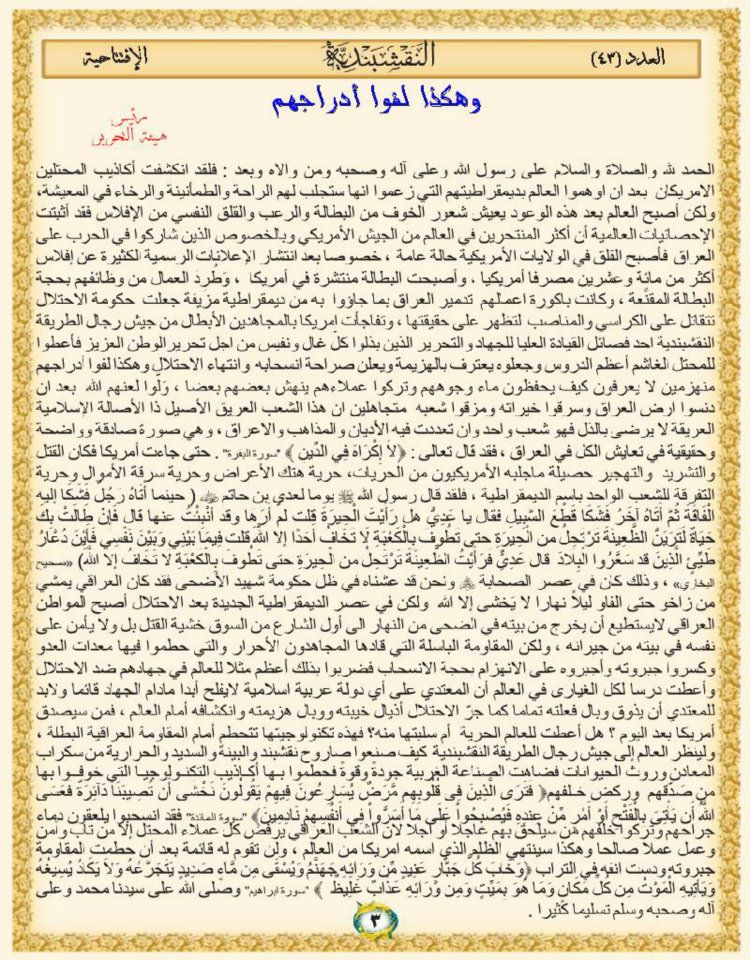 العدد (٤٣)
النقشبندية
الإفتتاحية
وهكذا لفوا أدراجهم
رئيس
هيئة التحرير
الحمد لله والصلاة والسلام على رسول الله وعلى آله وصحبه ومن والاه وبعد : فلقد انكشفت أكاذيب المحتلين
الامريكان بعد ان اوهموا العالم بديمقراطيتهم التي زعموا انها ستجلب لهم الراحة والطمأنينة والرخاء في المعيشة،
ولكن أصبح العالم بعد هذه الوعود يعيش شعور الخوف من البطالة والرعب والقلق النفسي من الإفلاس فقد أثبتت
الإحصائيات العالمية أن أكثر المنتحرين في العالم من الجيش الأمريكي وبالخصوص الذين شاركوا في الحرب على
العراق فأصبح القلق في الولايات الأمريكية حالة عامة ، خصوصا بعد انتشار الإعلانات الرسمية الكثيرة عن إفلاس
أكثر من مائة وعشرين مصرفا أمريكيا . وأصبحت البطالة منتشرة في أمريكا ، وطرد العمال من وظائفهم بحجة
البطالة المقنّعة ، وكانت باكورة اعمالهم تدمير العراق بما جاؤوا به من ديمقراطية مزيفة جعلت حكومة الاحتلال
تتقاتل على الكراسي والمناصب لتظهر على حقيقتها ، وتفاجأت امريكا بالمجاهدين الأبطال من جيش رجال الطريقة
النقشبندية احد فصائل القيادة العليا للجهاد والتحرير الذين بذلوا كل غال ونفيس من اجل تحرير الوطن العزيز فأعطوا
للمحتل الغاشم أعظم الدروس وجعلوه يعترف بالهزيمة ويعلن صراحة انسحابه وانتهاء الاحتلال وهكذا لفوا أدراجهم
منهزمين لا يعرفون كيف يحفظون ماء وجوههم وتركوا عملاءهم ينهش بعضهم بعضا ، ولّوا لعنهم الله بعد ان
دنسوا ارض العراق وسرقوا خيراته ومزقوا شعبه متجاهلين ان هذا الشعب العريق الأصيل ذا الأصالة الإسلامية
العريقة لا يرضى بالذل فهو شعب واحد وان تعددت فيه الأديان والمذاهب والاعراق ، وهي صورة صادقة وواضحة
وحقيقية في تعايش الكل في العراق ، فقد قال تعالى : ﴿لاَ إِكْرَاهَ فِي الدِّينِ ﴾ "سورة البقرة" . حتى جاءت أمريكا فكان القتل
والتشريد والتهجير حصيلة ماجلبه الأمريكيون من الحريات، حرية هتك الأعراض وحرية سرقة الأموال وحرية
التفرقة للشعب الواحد باسم الديمقراطية ، فلقد قال رسول الله ﷺ يوما لعدي بن حاتم ( حينما أَتَاهُ رَجُلٌ فَشَكَا إليه
الْفَاقَةَ ثُمَّ أَتَاهُ آخَرُ فَشَكَا قَطْعَ السَّبِيلِ فقال يا عَدِيُّ هل رَأَيْتَ الْحِيرَةَ قلت لم أَرَهَا وقد أُنْبِئْتُ عنها قال فَإِنْ طَالَتْ بِكَ
حَيَاةٌ لَتَرَيَنَّ الظَّعِينَةَ تَرْتَحِلُ من الْحِيرَةِ حتى تَطُوفَ بِالْكَعْبَةِ لَا تَخَافُ أَحَدًا إلا اللهَ قلت فِيمَا بَيْنِي وَبَيْنَ نَفْسِي فَأَيْنَ دُعَّارُ
طَيِّئٍ الَّذِينَ قد سَعَّرُوا الْبِلَادَ قال عَدِيٌّ فَرَأَيْتُ الظَّعِينَةَ تَرْتَحِلُ من الْحِيرَةِ حتى تَطُوفَ بِالْكَعْبَةِ لَا تَخَافُ إلا اللهَ) «صحيح
البخاري» ، وذلك كان في عصر الصحابة ونحن قد عشناه في ظل حكومة شهيد الأضحى فقد كان العراقي يمشي
من زاخو حتى الفاو ليلاً نهارا لا يَخشى إلا الله ولكن في عصر الديمقراطية الجديدة بعد الاحتلال أصبح المواطن
العراقي لايستطيع أن يخرج من بيته في الضحى من النهار الى أول الشارع من السوق خشية القتل بل ولا يأمن على
نفسه في بيته من جيرانه ، ولكن المقاومة الباسلة التي قادها المجاهدون الأحرار والتي حطموا فيها معدات العدو
وكسروا جبروته وأجبروه على الانهزام بحجة الانسحاب فضربوا بذلك أعظم مثلا للعالم في جهادهم ضد الاحتلال
وأعطت درسا لكل الغيارى في العالم أن المعتدي على أي دولة عربية اسلامية لايفلح أبدا مادام الجهاد قائما ولابد
للمعتدي أن يذوق وبال فعلته تماما كما جرّ الاحتلال أذيال خيبته ووبال هزيمته وانكشافه أمام العالم ، فمن سيصدق
أمريكا بعد اليوم ؟ هل أعطت للعالم الحرية أم سلبتها منه؟ فهذه تكنولوجيتها تتحطم أمام المقاومة العراقية البطلة ،
ولينظر العالم إلى جيش رجال الطريقة النقشبندية كيف صنعوا صاروخ نقشبند والبينة والسديد والحرارية من سكراب
المعادن وروث الحيوانات فضاهت الصناعة الغربية جودةً وقوةً فحطموا بها أكاذيب التكنولوجيا التي خوفوا بها
من صدقهم وركض خلفهم﴿ فَتَرَى الَّذِينَ فِي قُلُوبِهِم مَّرَضٌ يُسَارِعُونَ فِيهِمْ يَقُولُونَ نَخْشَى أَن تُصِيبَنَا دَآئِرَةٌ فَعَسَى
اللَّهُ أَن يَأْتِيَ بِالْفَتْحِ أَوْ أَمْرٍ مِّنْ عِندِهِ فَيُصْبِحُواْ عَلَى مَا أَسَرُّواْ فِي أَنْفُسِهِمْ نَادِمِينَ﴾ "سورة المائدة" فقد انسحبوا يلعقون دماء
جراحهم وتركوا خلفهم من سيلحق بهم عاجلا او آجلا لان الشعب العراقي يرفض كل عملاء المحتل إلا من تاب وآمن
وعمل عملا صالحا وهكذا سينتهي الظلم الذي اسمه امريكا من العالم ، ولن تقوم له قائمة بعد أن حطمت المقاومة
جبروته ودست انفه في التراب ﴿وَخَابَ كُلُّ جَبَّارٍ عَنِيدٍ مِّن وَرَآئِهِ جَهَنَّمُ وَيُسْقَى مِن مَّاءٍ صَدِيدٍ يَتَجَرَّعُهُ وَلاَ يَكَادُ يُسِيغُهُ
وَيَأْتِيهِ الْمَوْتُ مِن كُلِّ مَكَانٍ وَمَا هُوَ بِمَيِّتٍ وَمِن وَرَآئِهِ عَذَابٌ غَلِيظٌ ﴾ "سورة ابراهيم" وصلى الله على سيدنا محمد وعلى
آله وصحبه وسلم تسليما كثيرا .
٣